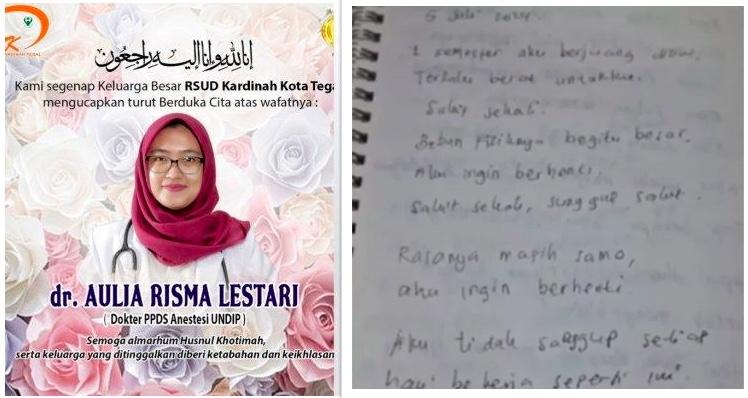 إنا لله وإنا إليه راجعون
KARDINAH TEGAL
Kami segenap Keluarga Besar RSUD Kardinah Kota Tega
mengucapkan turut Berduka Cita atas wafatnya :
dr. AULIA RISMA LESTARI
( Dokter PPDS Anestesi UNDIP )
Semoga almarhum Husnul Khotimah,
serta keluarga yang ditinggalkan diberi ketabahan dan keikhlasan
5 Juli
1 semester aku berjuang
Terlalu berat untukku.
Sakit sekali.
Beban fisiknya begitu besar.
Aku ingin berhenti,
Sakit sekali, sungguh sakit.
Rasanya masih sama,
aku ingin berhenti
Aku tidak sanggup setiap
hari bekerja seperti ini.